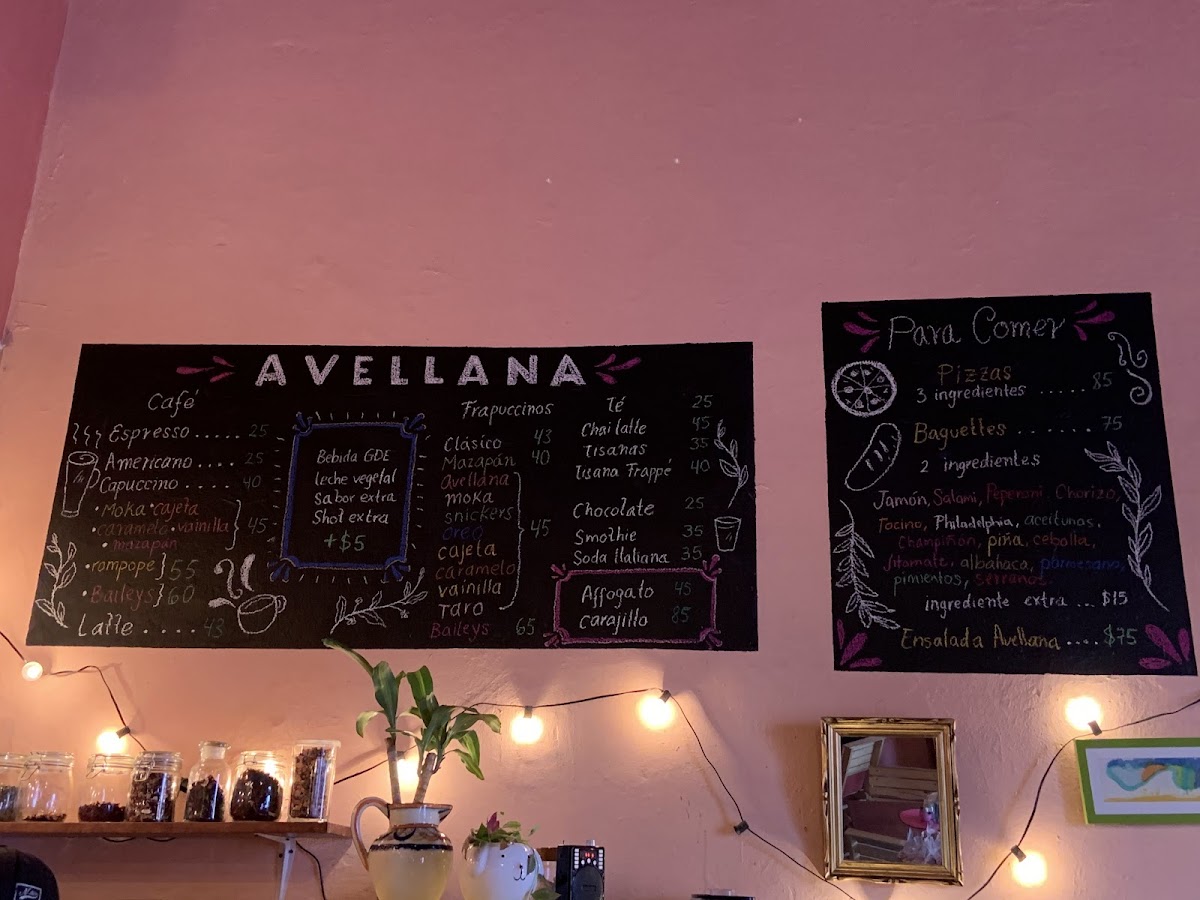 AVELLANA
Café
Espresso ..... 25
Americano .... 25
Capuccino ... 40
• Moka • cajeta
• caramelo • vainilla
• Mazapán
45
• rompope } 55
• Baileys } 60
Latte .... 43
Bebida GDE
leche vegetal
Sabor extra
Shot extra
+$5
Frapuccinos
Clásico 43
Mazapán 40
Avellana
moka
snickers
oreo
cajeta
caramelo
vainilla
Taro
45
Baileys 65
Té 25
Chai latte 45
Tisanas 35
Tisana Frappé 40
Chocolate 25
Smothie 35
Soda Italiana 35
Affogato 45
Carajillo 85
Para Comer
Pizzas
3 ingredientes ..... 85
Baguettes ....... 75
2 ingredientes
Jamón, Salami, Peperoni, Chorizo,
Tocino, Philadelphia, aceitunas,
Champiñon, piña, cebolla,
jitomate, albahaca, parmesano,
pimientos, serranos.
ingrediente extra ... $15
Ensalada Avellana .... $75